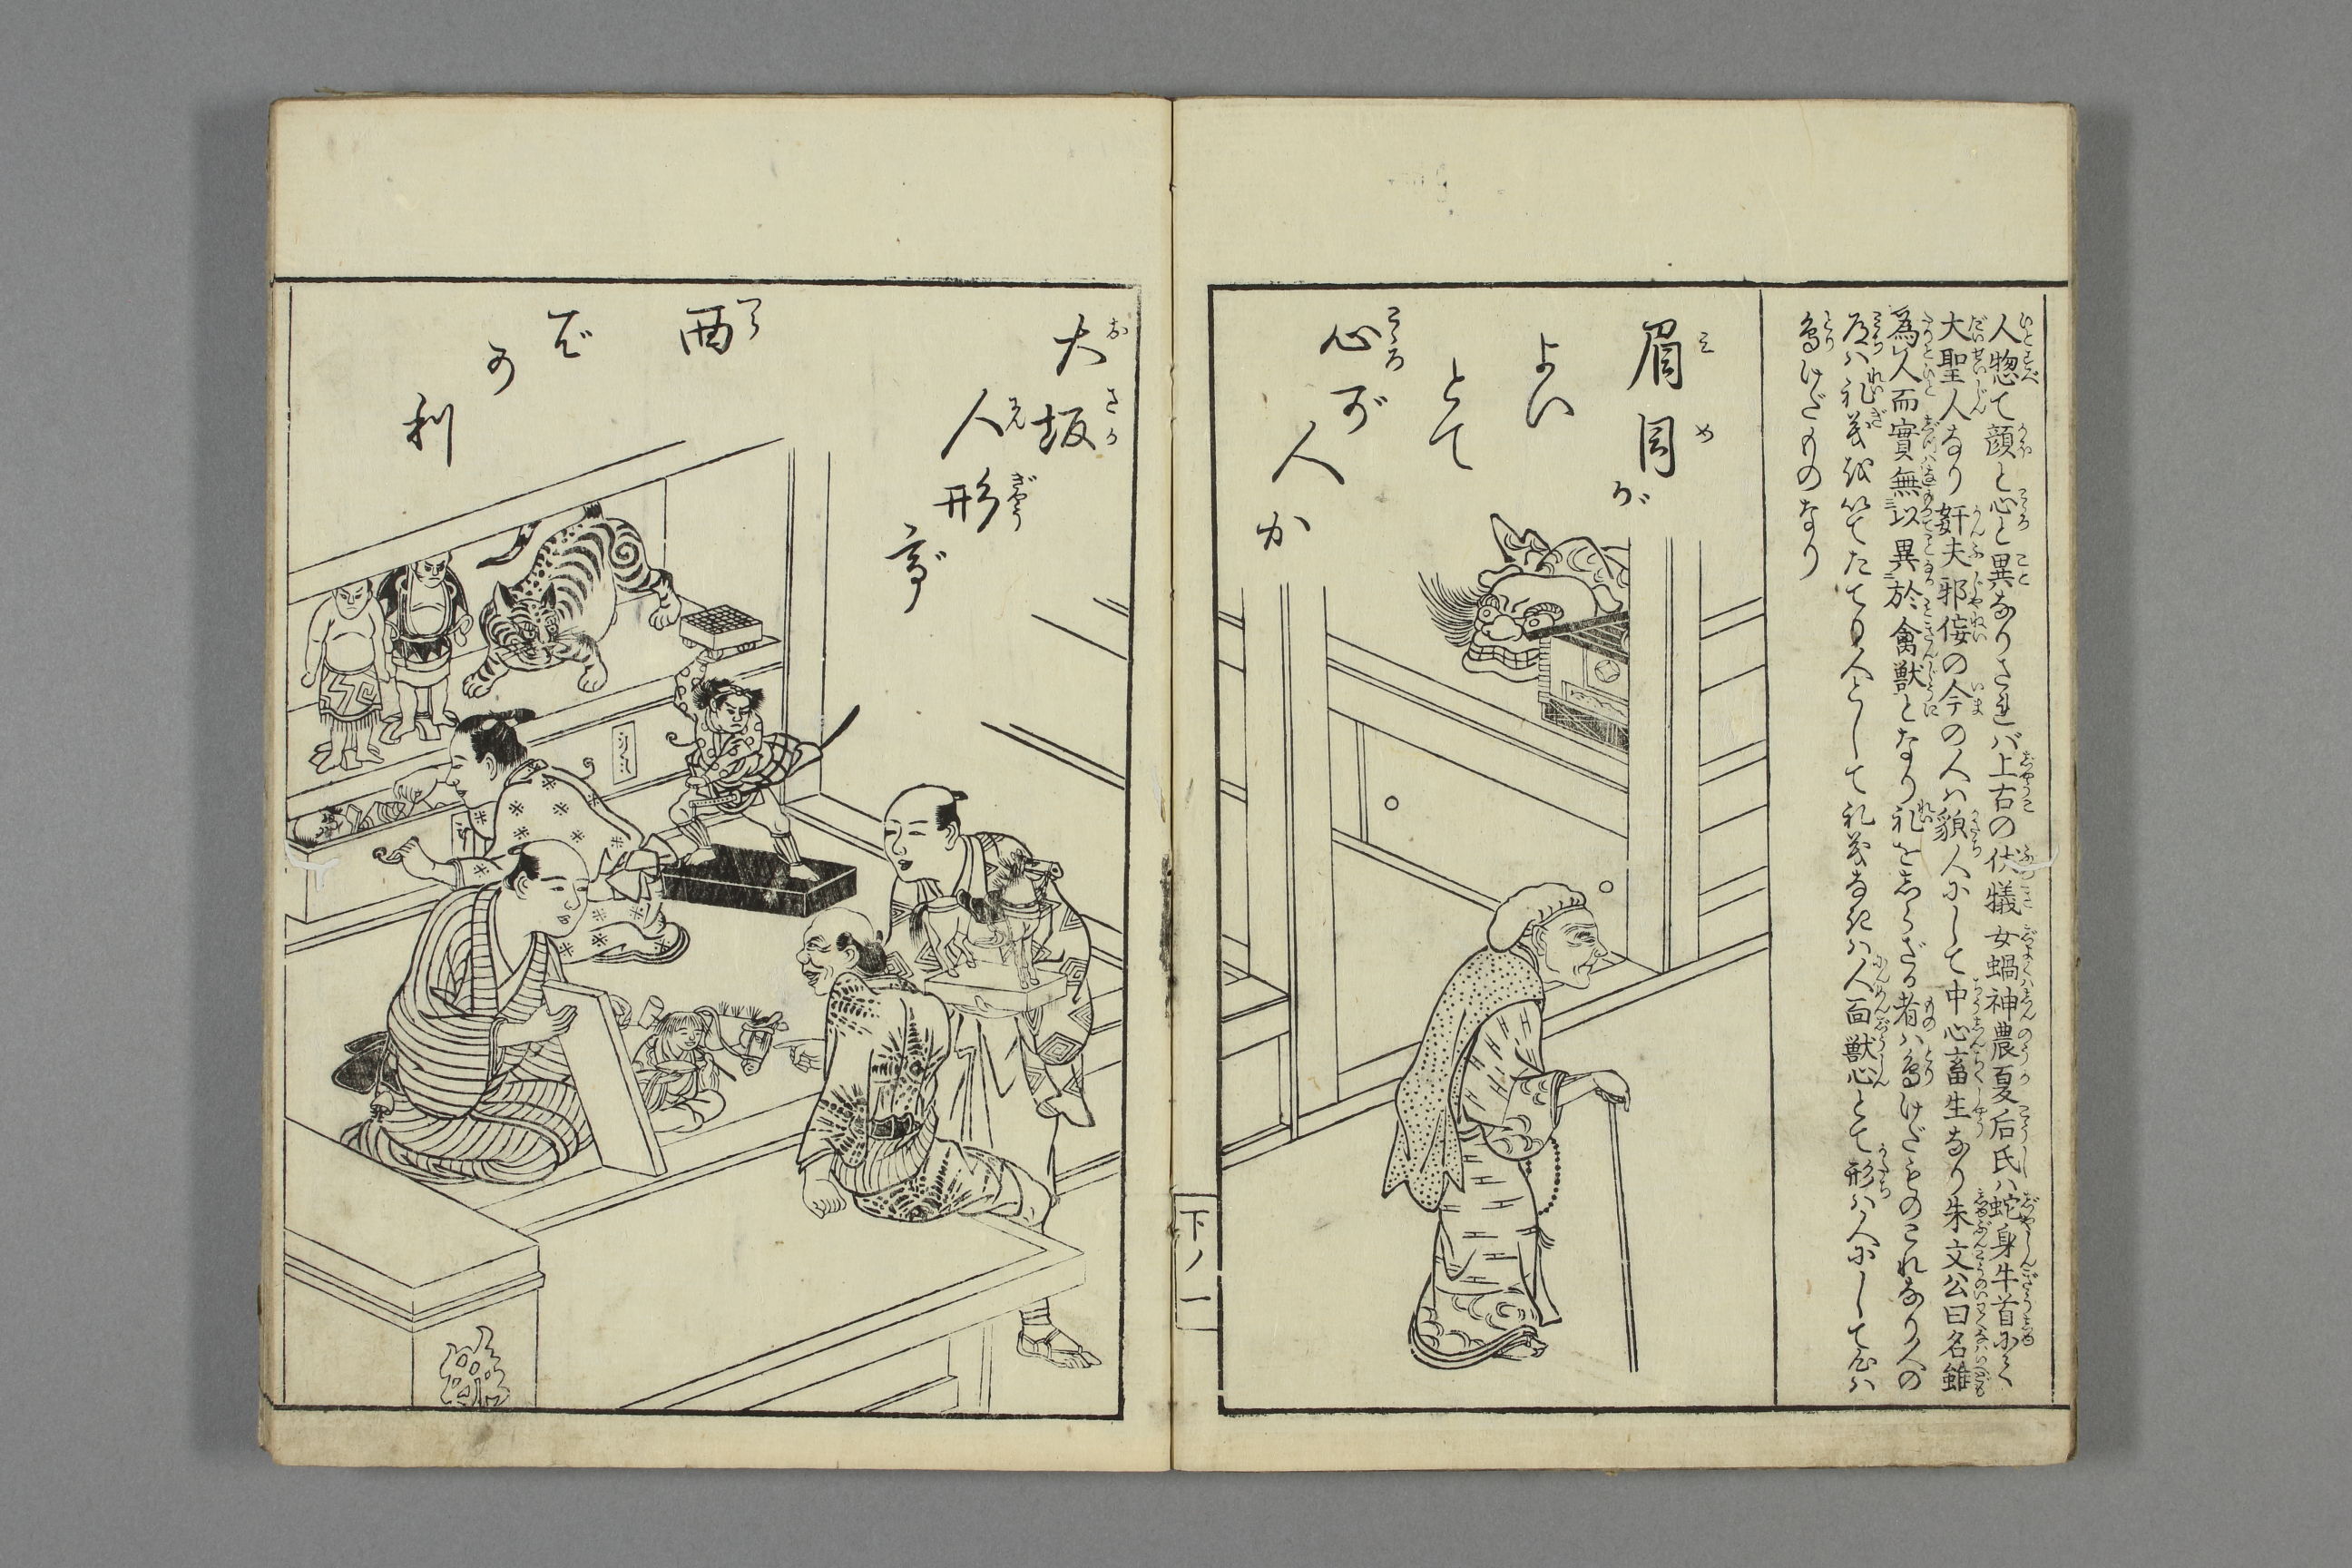 人惣て顔と心と異なりされバ上古の伏犠女蝸神農夏后氏ハ蛇身牛首にて
大聖人なり奸夫邪侫の今の人ハ貌人にして中心畜生なり朱文公曰名雖
為人而實無以異於禽獣となり礼をしらざる者ハ鳥けだものこれなり人の
道ハ礼義を以てたてり人として礼義なきハ人面獣心とて形ハ人にして心ハ
鳥けだものなり
眉目が
よい
とて
心が
人か
下ノ一
大坂
人形
で
西
ぞ
の
利